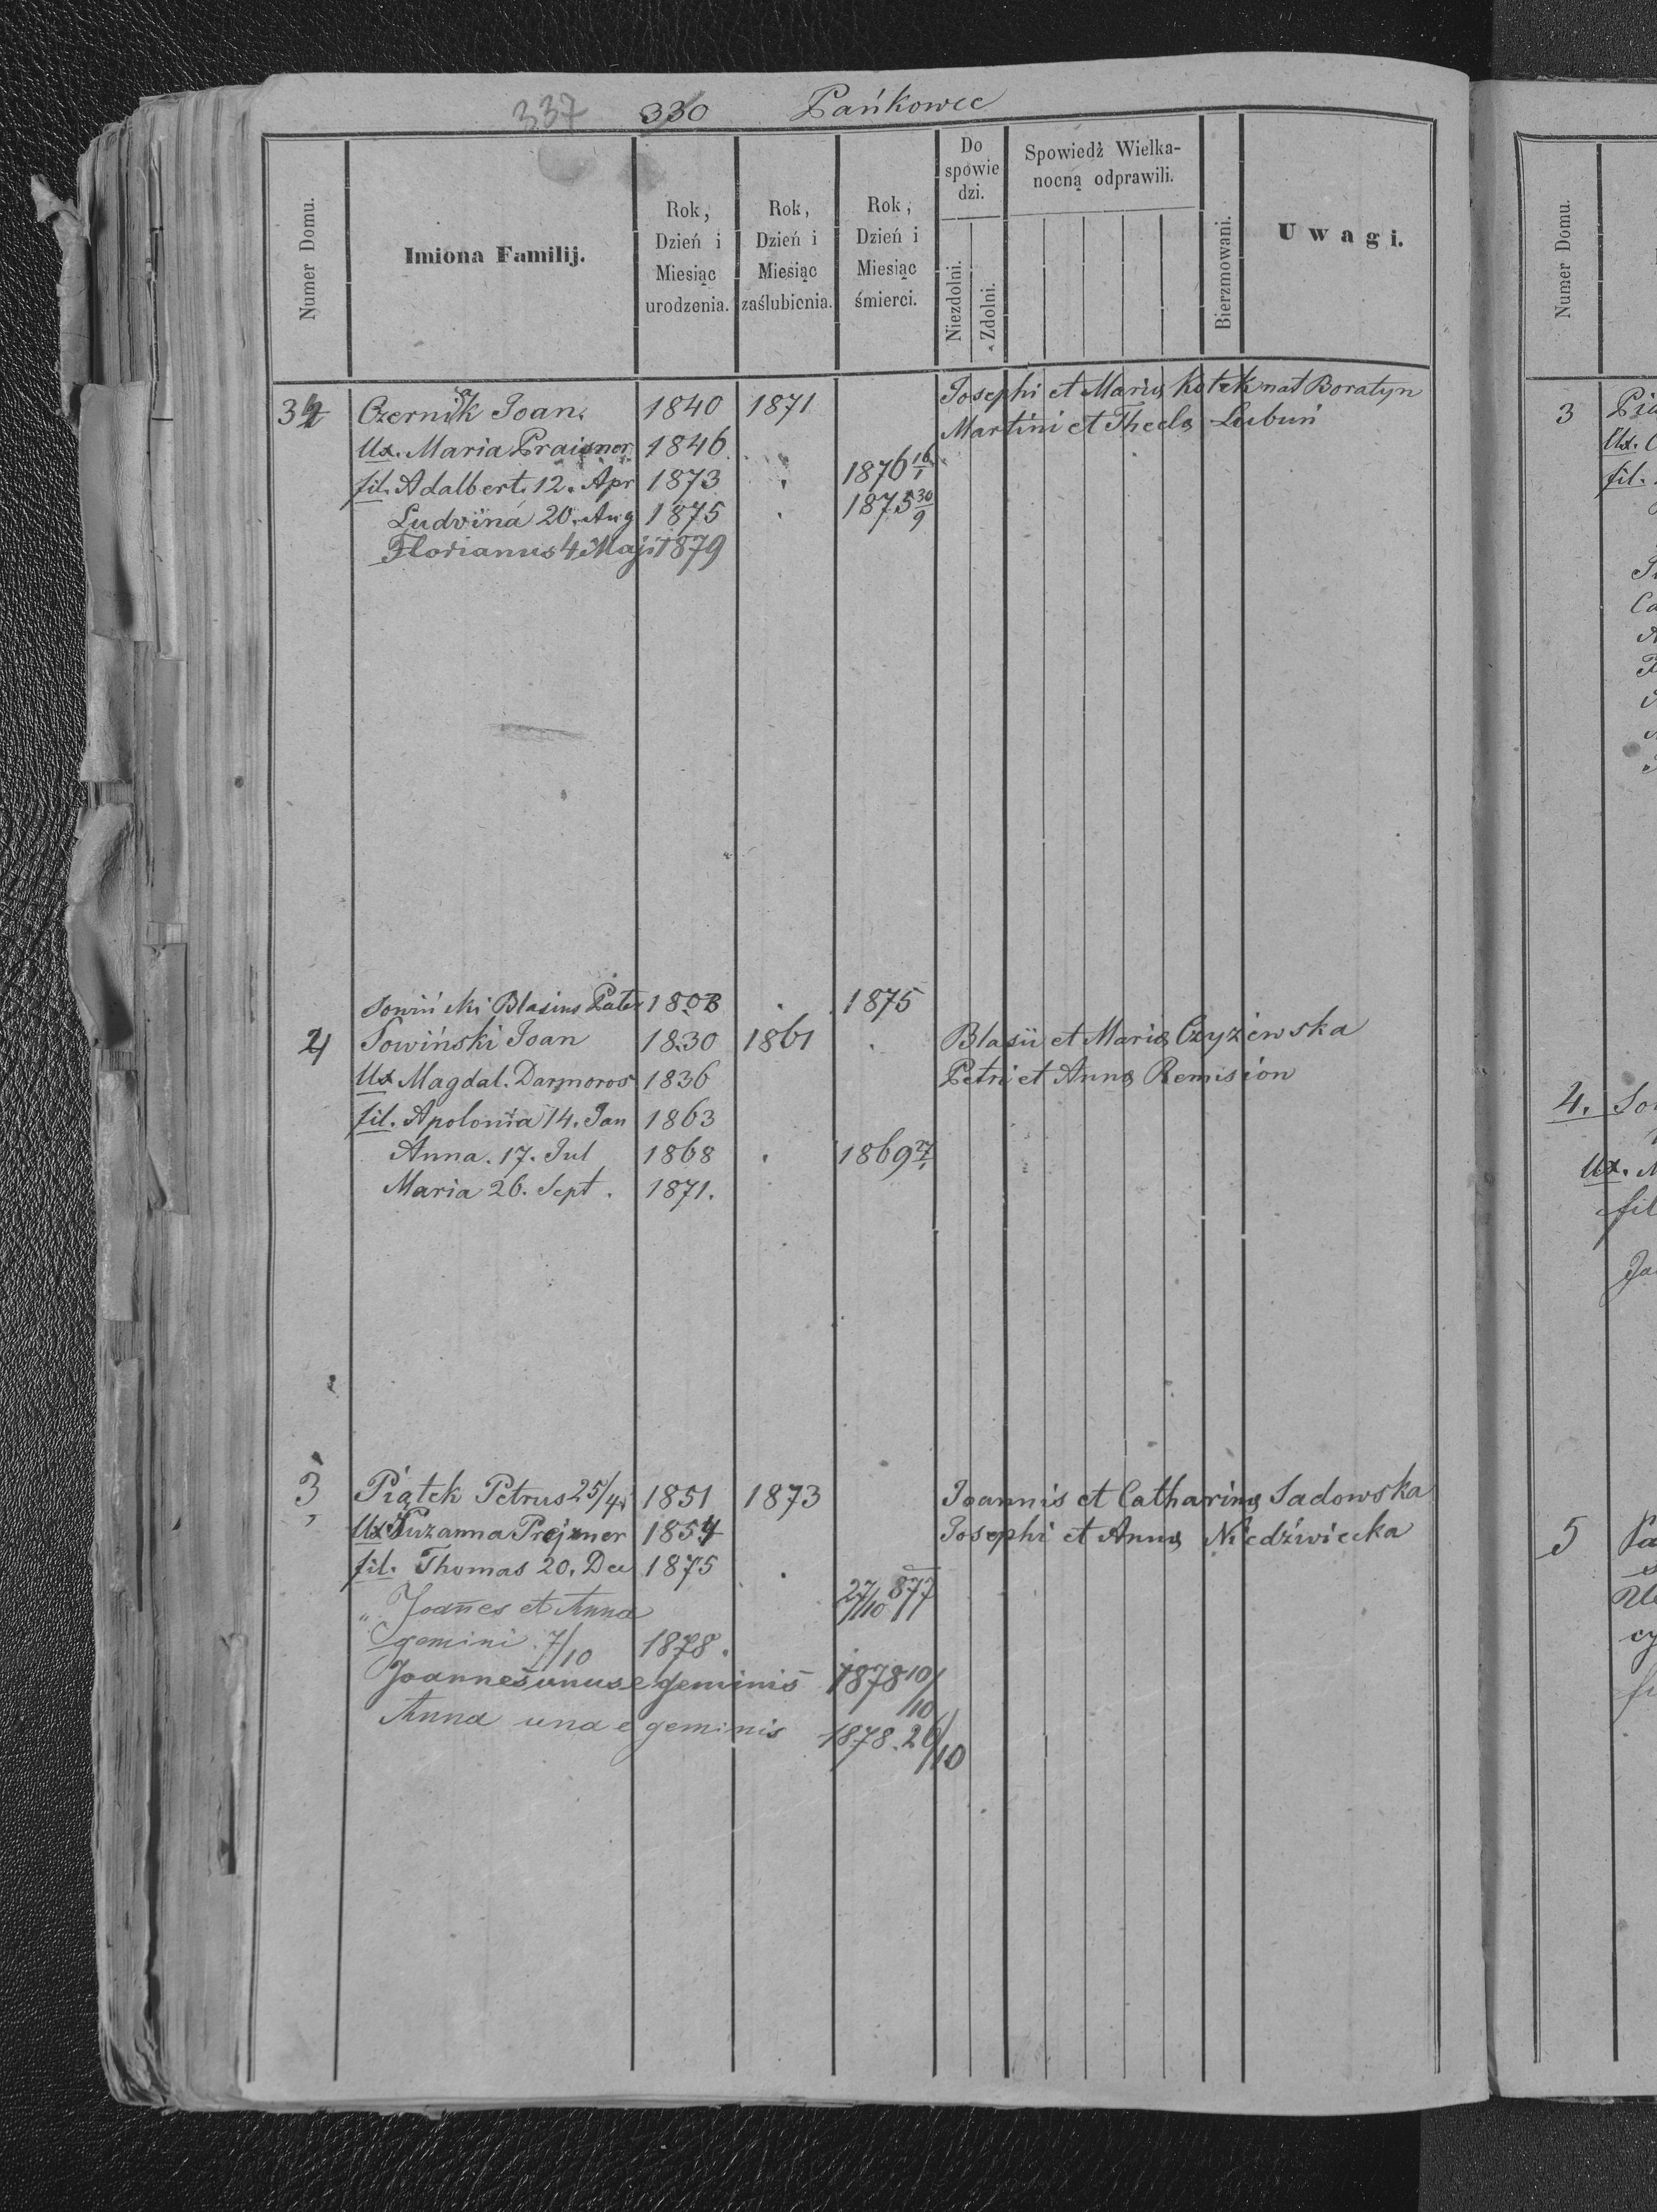 337 330 Pańkowec
Numer Domu.
Imiona Familij.
Rok, Dzień i Miesiąc urodzenia.
Rok, Dzień i Miesiąc zaślubienia.
Rok, Dzień i Miesiąc śmierci.
Do spowiedzi.
Niezdolni.
Zdolni.
Spowiedź Wielkanocną odprawili.
Bierzmowani.
Uwagi.
Czernik Joan. 1840 1871 Josephi et Maria Kotek nat Boratyn
Ux. Maria Praisner 1846 Martini et Thecla Lubuń
fil. Adalbert. 12. Apr 1873 1876 16/1
Ludvina 20. Aug 1875 1875 30/9
Florianus 4 Maji 1879
Sowiński Blasius Pater 1803 1875
Sowiński Joan 1830 1861 Blasii et Maria Czyżewska
Ux Magdal. Darmoros 1836 Petri et Anna Remision
fil. Apolonia 14. Jan 1863
Anna. 17. Jul 1868 1869 27/1
Maria 26. Sept. 1871.
3 Piątek Petrus 25/4 1851 1873 Joannis et Catharina Sadowska
Ux Zuzanna Prejzner 1854 Josephi et Anna Niedźwiecka
fil. Thomas 20. Dec 1875 27/10 877
" Joannes et Anna
gemini 7/10 1878.
Joannes unus e geminis 1878 10/10
Anna una e geminis 1878. 26/10
Numer Domu.
3
Ux.
fil.
4.
Ux.
fil
5